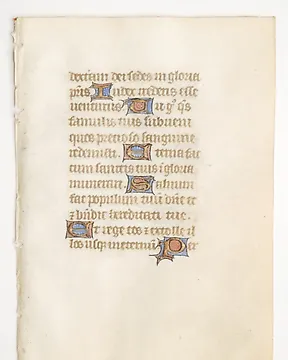 dexteram dei sedes in gloria
pr̄is Iudex crederis esse
uenturus Te ergo q̄s
famulis tuis subueni
quos precioso sanguine
redemisti Eterna fac
cum sanctis tuis ĩ gloria
munerari Saluum
fac populum tuũ dñe et
⁊ bñdic hereditati tue.
Et rege eos ⁊ extolle il
los usq̨ in eternũ Per